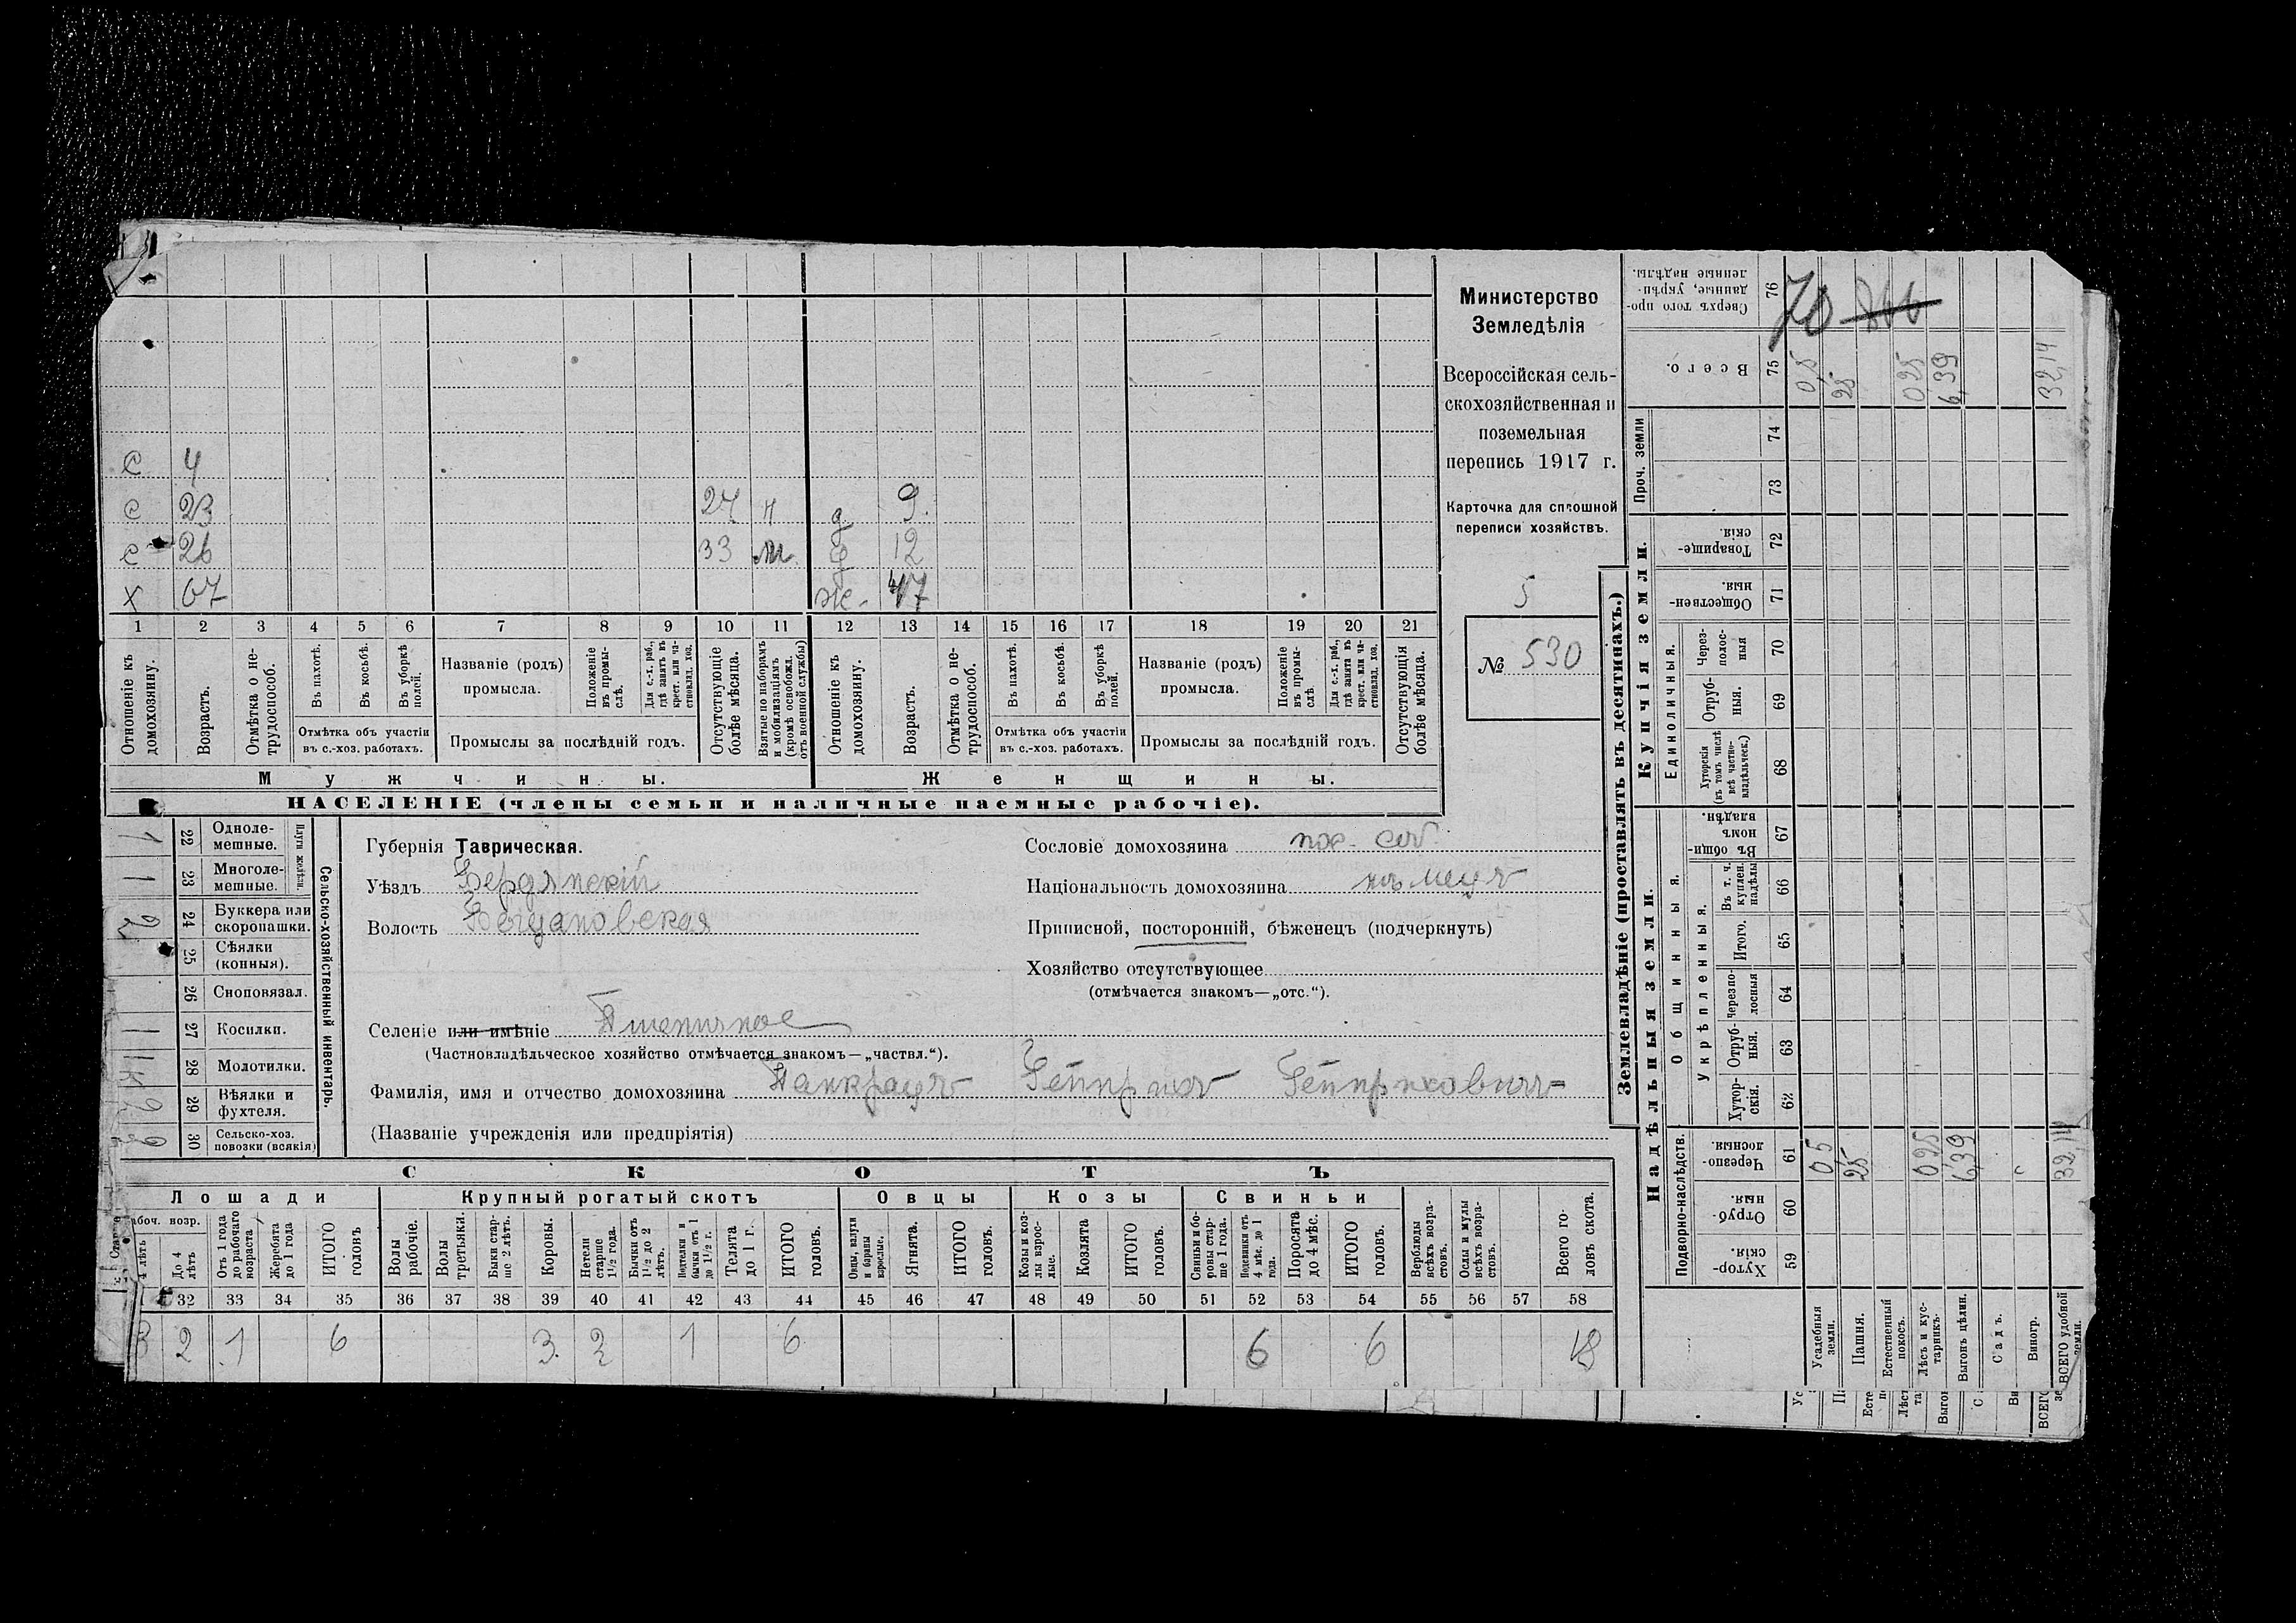 С 4
С 23 24 н д 9.
С 26 33 м д 12
Х 67 Ж. 47
1 2 3 4 5 6 7 8 9 10 11 12 13 14 15 16 17 18 19 20 21
Отношеніе къ домохозяину.
Возрастъ.
Отмѣтка о не-
трудоспособ.
Въ пахотѣ.
Въ косьбѣ.
Въ уборкѣ
полей.
Отмѣтка объ участіи
въ с.-хоз. работахъ.
Названіе (родъ)
промысла.
Положеніе
въ промы-
слѣ.
Для с.-х. раб.,
гдѣ занятъ въ
крест. или ча-
стновлад. хоз.
Промыслы за послѣдній годъ.
Отсутствующіе
болѣе мѣсяца.
Взятые по наборамъ
и мобилизаціямъ
(кромѣ освобожд.
отъ военной службы)
Отношеніе къ
домохозяину.
Возрастъ.
Отмѣтка о не-
трудоспособ.
Въ пахотѣ.
Въ косьбѣ.
Въ уборкѣ
полей.
Отмѣтка объ участіи
въ с.-хоз. работахъ.
Названіе (родъ)
промысла.
Положеніе
въ промы-
слѣ.
Для с.-х. раб.,
гдѣ занята въ
крест. или ча-
стновлад. хоз.
Промыслы за послѣдній годъ.
Отсутствующія
болѣе мѣсяца.
Мужчины.
Женщины.
НАСЕЛЕНІЕ (члены семьи и наличные наемные рабочіе).
Министерство
Земледѣлія
Всероссійская сель-
скохозяйственная и
поземельная
перепись 1917 г.
Карточка для сплошной
переписи хозяйствъ.
5
№ 530
Сельско-хозяйственный инвентарь.
Плуги желѣзн.
1 22 Одноле-
мешные.
1 23 Многоле-
мешные.
2 24 Буккера или
скоропашки.
25 Сѣялки
(конныя).
26 Сноповязал.
1 27 Косилки.
28 Молотилки.
29 Вѣялки и
фухтеля.
30 Сельско-хоз.
повозки (всякія)
Губернія Таврическая.
Уѣздъ Бердянскій
Волость Богдановская
Селеніе или имѣніе Пшеничное
(Частновладѣльческое хозяйство отмѣчается знакомъ—„частвл.“).
Фамилія, имя и отчество домохозяина Панкрацъ Гейнрихъ Гейнриховичъ
(Названіе учрежденія или предпріятія)
Сословіе домохозяина пос. соб.
Національность домохозяина нѣмецъ
Приписной, посторонній, бѣженецъ (подчеркнуть)
Хозяйство отсутствующее
(отмѣчается знакомъ—„отс.“).
СКОТЪ
Лошади
Крупный рогатый скотъ
Овцы
Козы
Свиньи
4 лѣтъ
До 4
лѣтъ
Отъ 1 года
до рабочаго
возраста
Жеребята
до 1 года
ИТОГО
головъ
Волы
рабочіе.
Волы
третьяки.
Быки стар-
ше 2 лѣтъ.
Коровы.
Нетели
старше
1½ года.
Бычки отъ
1½ до 2
лѣтъ.
Нетелки и
бычки отъ 1
до 1½ г.
Телята
до 1 г.
ИТОГО
головъ.
Овцы, валухи
и бараны
взрослые.
Ягнята.
ИТОГО
головъ.
Козы и коз-
лы взрос-
лые.
Козлята
ИТОГО
головъ.
Свиньи и бо-
ровы стар-
ше 1 года.
Подсвинки отъ
4 мѣс. до 1
года.
Поросята
до 4 мѣс.
ИТОГО
головъ.
Верблюды
всѣхъ возра-
стовъ.
Ослы и мулы
всѣхъ возра-
стовъ.
Всего го-
ловъ скота.
32 33 34 35 36 37 38 39 40 41 42 43 44 45 46 47 48 49 50 51 52 53 54 55 56 57 58
3 2 1 6 3 2 1 6 6 6 18
Землевладѣніе (проставлять въ десятинахъ.)
Надѣльныя земли.
Купчія земли.
Проч. земли
Подворно-наслѣдств.
Общинныя.
Укрѣпленныя.
Единоличныя.
Хутор-
скія. 59
Отруб-
ныя. 60
Черезпо-
лосныя. 61
Хутор-
скія. 62
Отруб-
ныя. 63
Черезпо-
лосныя 64
Итого. 65
Въ т. ч.
куплен.
надѣлы 66
Въ общин-
номъ
владѣн. 67
Хуторскія
(въ томъ числѣ
всѣ частно-
владѣльческ.) 68
Отруб-
ныя. 69
Через-
полос-
ныя 70
Обществен-
ныя. 71
Товарище-
скія 72
73
74
Всего. 75
Сверхъ того про-
данные, укрѣп-
ленные надѣлы. 76
70
Усадебныя
земли. 0,5 0,5
Пашня. 25 25
Естественный
покосъ.
Лѣсъ и кус-
тарникъ. 0,25 0,25
Выгонъ цѣлин. 6,39 6,39
Садъ.
Виногр.
ВСЕГО удобной
земли. 32,14 32,14